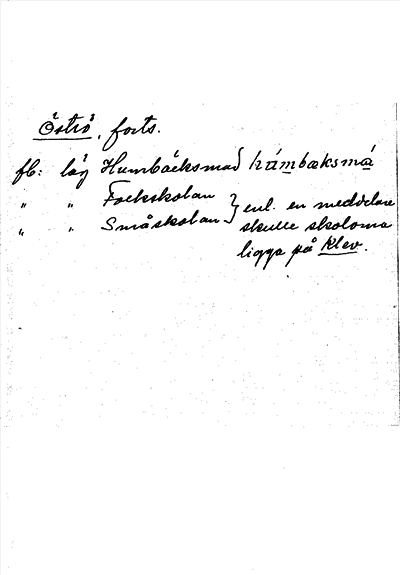 Öströ, forts.
fb: läg Humbäcksmad } húmbæksmá
" " Folkskolan } enl. en meddelare
" " Småskolan } skulle skolorna
ligga på Klev.